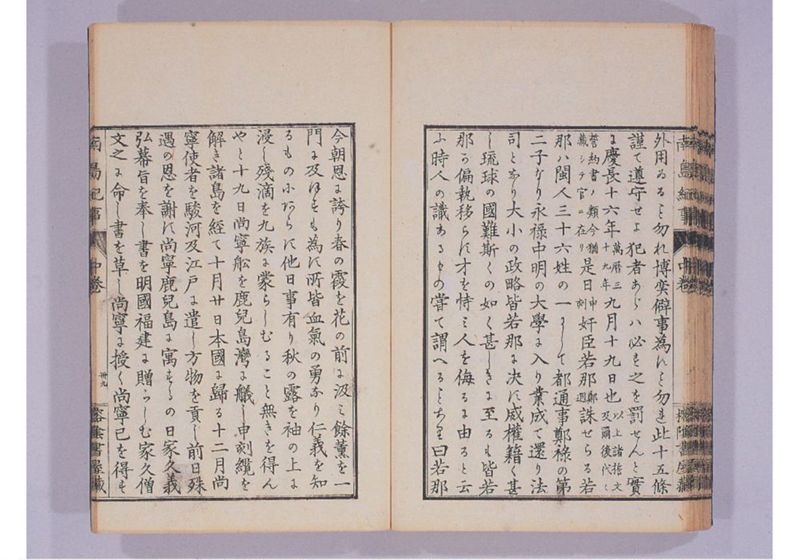 外用ゐると勿れ博奕僻事為にと勿も此十五條
謹て遵守せよ犯者あらハ必も之を罰せんと實
に慶長十六年萬暦三十九年九月十九日也以上諸掟文及爾後代々
誓約書ノ類今猶藏シテ官ニ在リ是日申刻奸臣若那鄭迵誅せらる若
那ハ閩人三十六姓の一よして都通事鄭祿の第
二子なり永禄中明の大學に入り業成て還り法
司となり大小の政略皆若那に決に威權籍く甚
し琉球の國難斯くの如く甚しきに至るも皆若
那の偏執移らに才を恃ミ人を侮るに由ると云
ふ時人の識あるものの嘗て謂へるあり曰若那
今朝恩に誇り春の霞を花の前に汲ミ餘薫を一
門に及ほすも為に所皆血氣の勇なり仁義を知
るものにあらに他日事有り秋の露を袖の上に
浸し殘滴を九族に蒙らしむること無きを得ん
やと十九日尚寧舩を鹿兒島灣に艤し申刻纜を
解き諸島を經て十月廿日本國に歸る十二月尚
寧使者を駿河及江戸に遣し方物を貢し前日殊
遇の恩を謝に尚寧鹿兒島に寓するの日家久義
弘幕旨を奉し書を明國福建に贈らしむ家久僧
文之に命し書を草し尚寧に授く尚寧已を得も
南島紀事 中卷
卅九